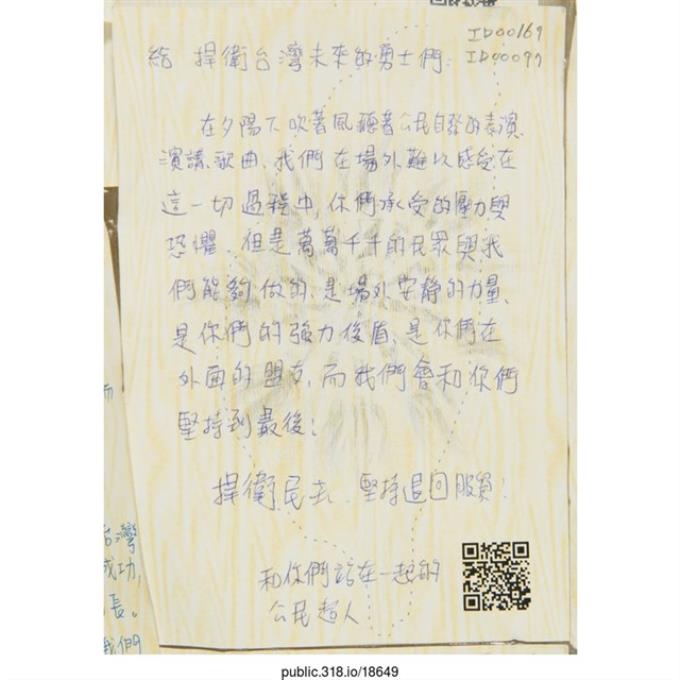 ID00169
給 捍衛台灣未來的勇士們: ID00099
在夕陽下吹著風聽著公民自發的表演
演講、歌曲、我們在場外難以感受在
這一切過程中,你們承受的壓力與
恐懼、但是萬萬千千的民眾與我
們能夠做的、是場外安靜的力量、
是你們的強力後盾、是你們在
外面的盟友,而我們會和你們
堅持到最後:
捍衛民主、堅持退回服貿!
和你們站在一起的
公民超人
台灣
成功,
長。
我們
public.318.io/18649